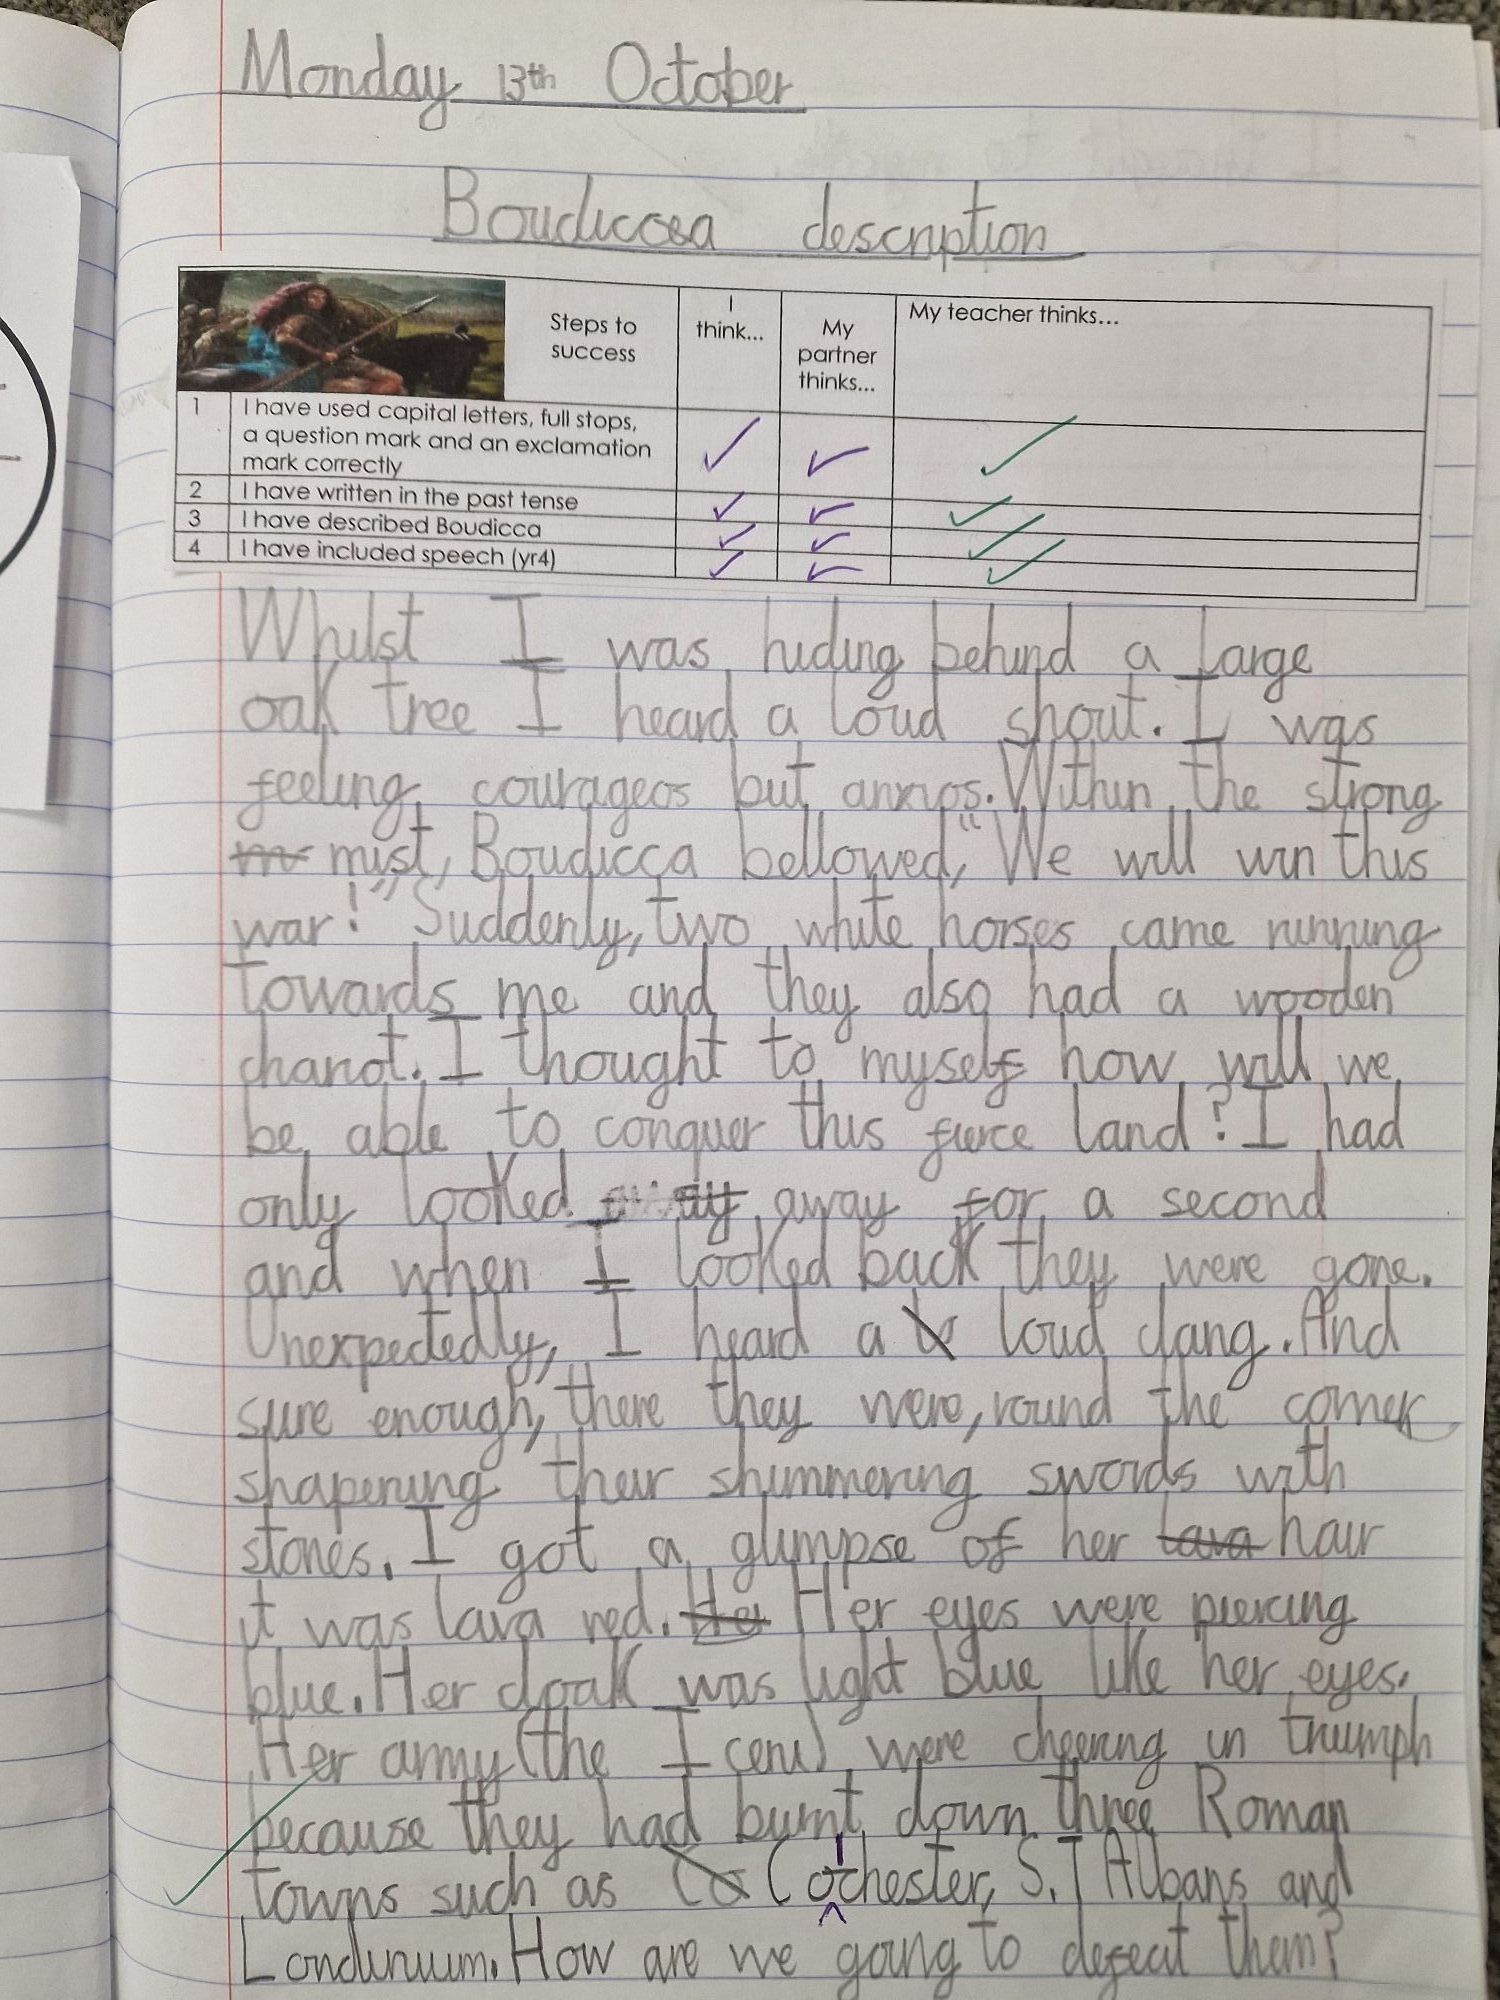 Monday 13th October
Boudiccea description
Steps to success
I think...
My partner thinks...
My teacher thinks...
1 I have used capital letters, full stops, a question mark and an exclamation mark correctly
2 I have written in the past tense
3 I have described Boudicca
4 I have included speech (yr4)
Whilst I was hiding behind a large
oak tree I heard a loud shout. I was
feeling courageos but anxios. Within the strong
mist, Boudicca bellowed, "We will win this
war!" Suddenly, two white horses came running
towards me and they also had a wooden
chariot. I thought to myself how will we
be able to conquer this fierce land? I had
only looked away for a second
and when I looked back they were gone.
Unexpectedly, I heard a loud clang. And
sure enough, there they were, round the corner
shapening their shimmering swords with
stones. I got a glimpse of her hair
it was lava red. Her eyes were piercing
blue. Her cloak was light blue like her eyes.
Her army (the Iceni) were cheering in triumph
because they had burnt down three Roman
towns such as Colchester, S.T Albans and
Londinuum. How are we going to defeat them?